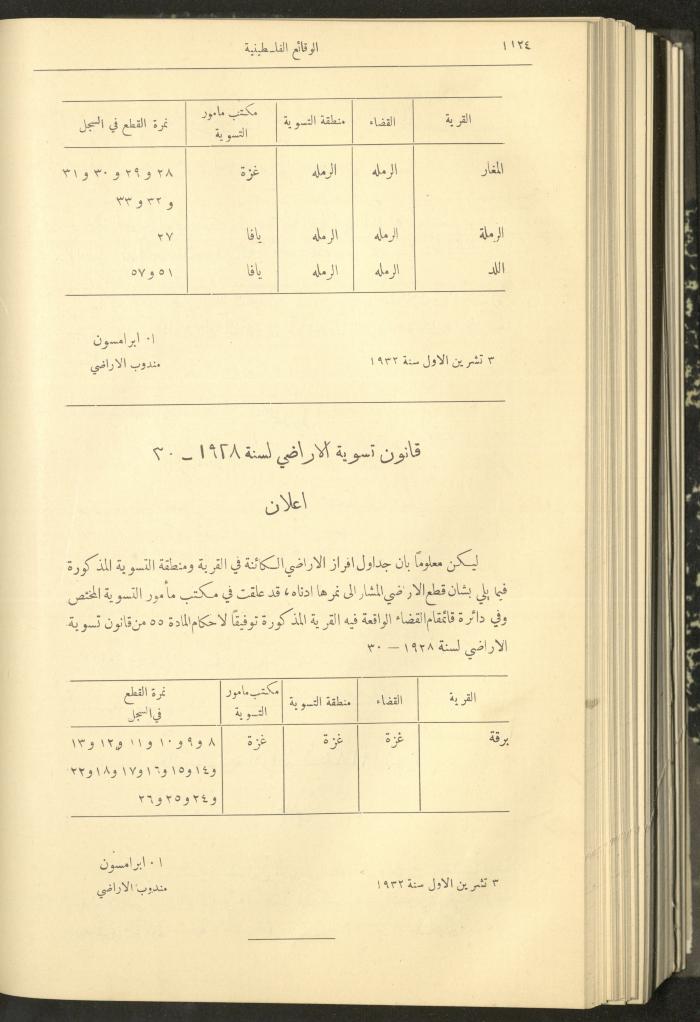 ١١٢٤ الوقائع الفلسطينية
القرية القضاء منطقة التسوية مكتب مامور التسوية نمرة القطع في السجل
المغار الرمله الرمله غزة ٢٨ و ٢٩ و ٣٠ و ٣١
و ٣٢ و ٣٣
الرملة الرمله الرمله يافا ٢٧
اللد الرمله الرمله يافا ٥١ و ٥٧
ا٠ ابرامسون
٣ تشرين الاول سنة ١٩٣٢ مندوب الاراضي
قانون تسوية الاراضي لسنة ١٩٢٨ - ٣٠
اعلان
ليكن معلومًا بان جداول افراز الاراضي الكائنة في القرية ومنطقة التسوية المذكورة
فيما يلي بشان قطع الاراضي المشار الى نمرها ادناه، قد علقت في مكتب مأمور التسوية المختص
وفي دائرة قائمقام القضاء الواقعة فيه القرية المذكورة توفيقًا لاحكام المادة ٥٥ من قانون تسوية
الاراضي لسنة ١٩٢٨ – ٣٠
القرية القضاء منطقة التسوية مكتب مامور التسوية نمرة القطع في السجل
برقة غزة غزة غزة ٨ و ٩ و ١٠ و ١١ و ١٢ و ١٣
و ١٤ و ١٥ و ١٦ و ١٧ و ١٨ و ٢٢
و ٢٤ و ٢٥ و ٢٦
ا٠ ابرامسون
٣ تشرين الاول سنة ١٩٣٢ مندوب الاراضي